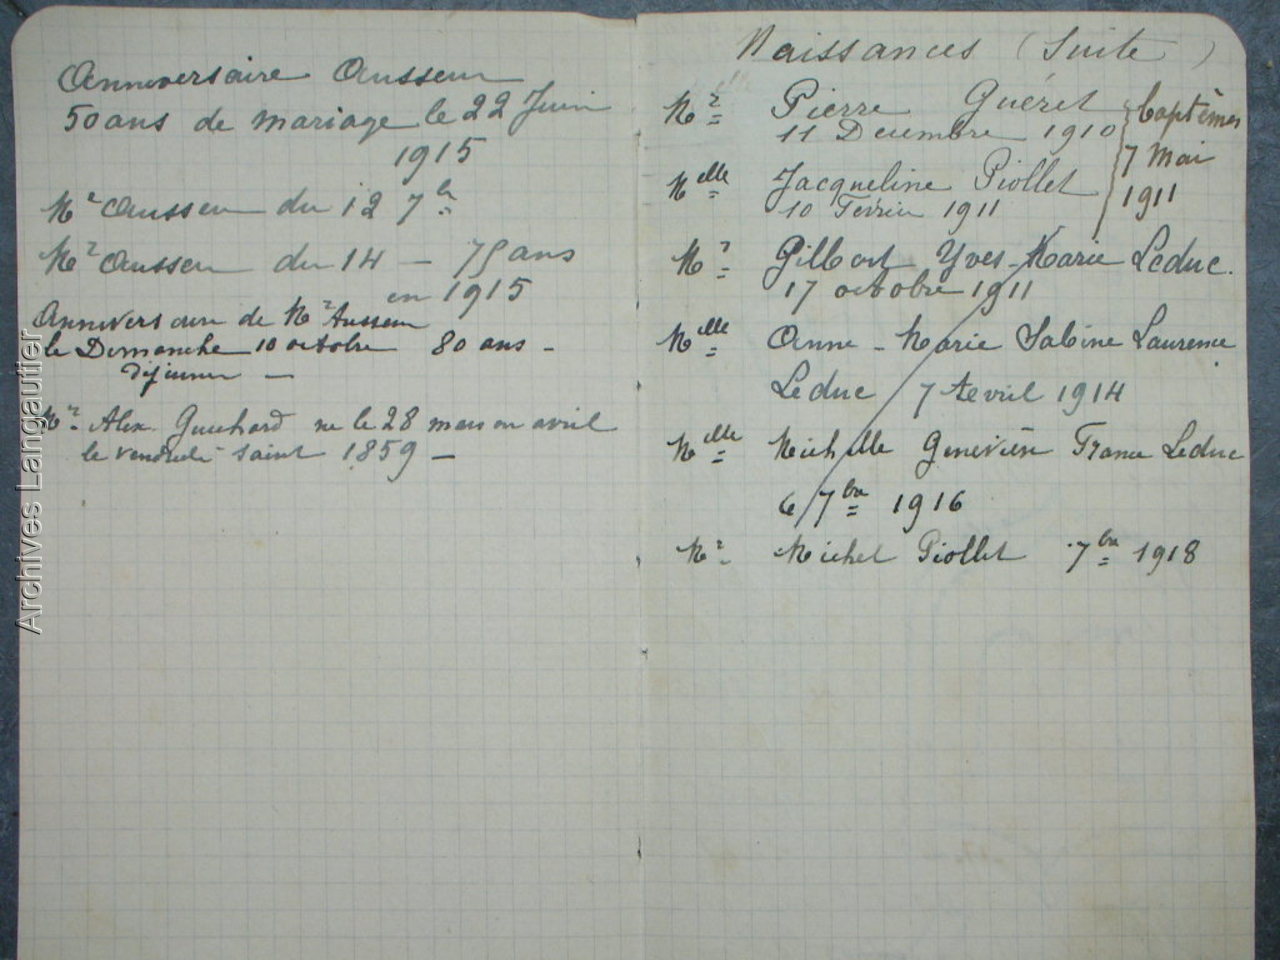 Anniversaire Ausseur
50 ans de mariage le 22 Juin
1915
Mr Ausseur du 12 7bre
Mr Ausseur du 14 — 75 ans
en 1915
Anniversaire de Mr Ausseur
le Dimanche 10 octobre 80 ans -
déjeuner —
Mr Alex. Guichard né le 28 mars ou avril
le vendredi saint 1859 —
Naissances (Suite)
Mr Pierre Guéret
11 Decembre 1910
Melle Jacqueline Piollet
10 Fevrier 1911
baptêmes
7 Mai
1911
Mr Gilbert Yves-Marie Leduc.
17 octobre 1911
Melle Anne-Marie Sabine Laurence
Leduc 7 Avril 1914
Melle Michelle Geneviève France Leduc
6 7bre 1916
Mr Michel Piollet 7bre 1918
Archives Langautier